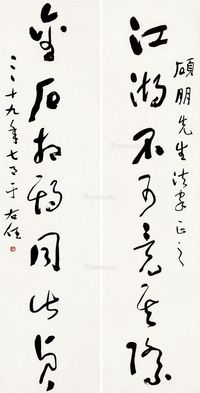 碩朋先生法家正之
江湖不可竟其際
金石相期同此貞
三十九年七月于右任